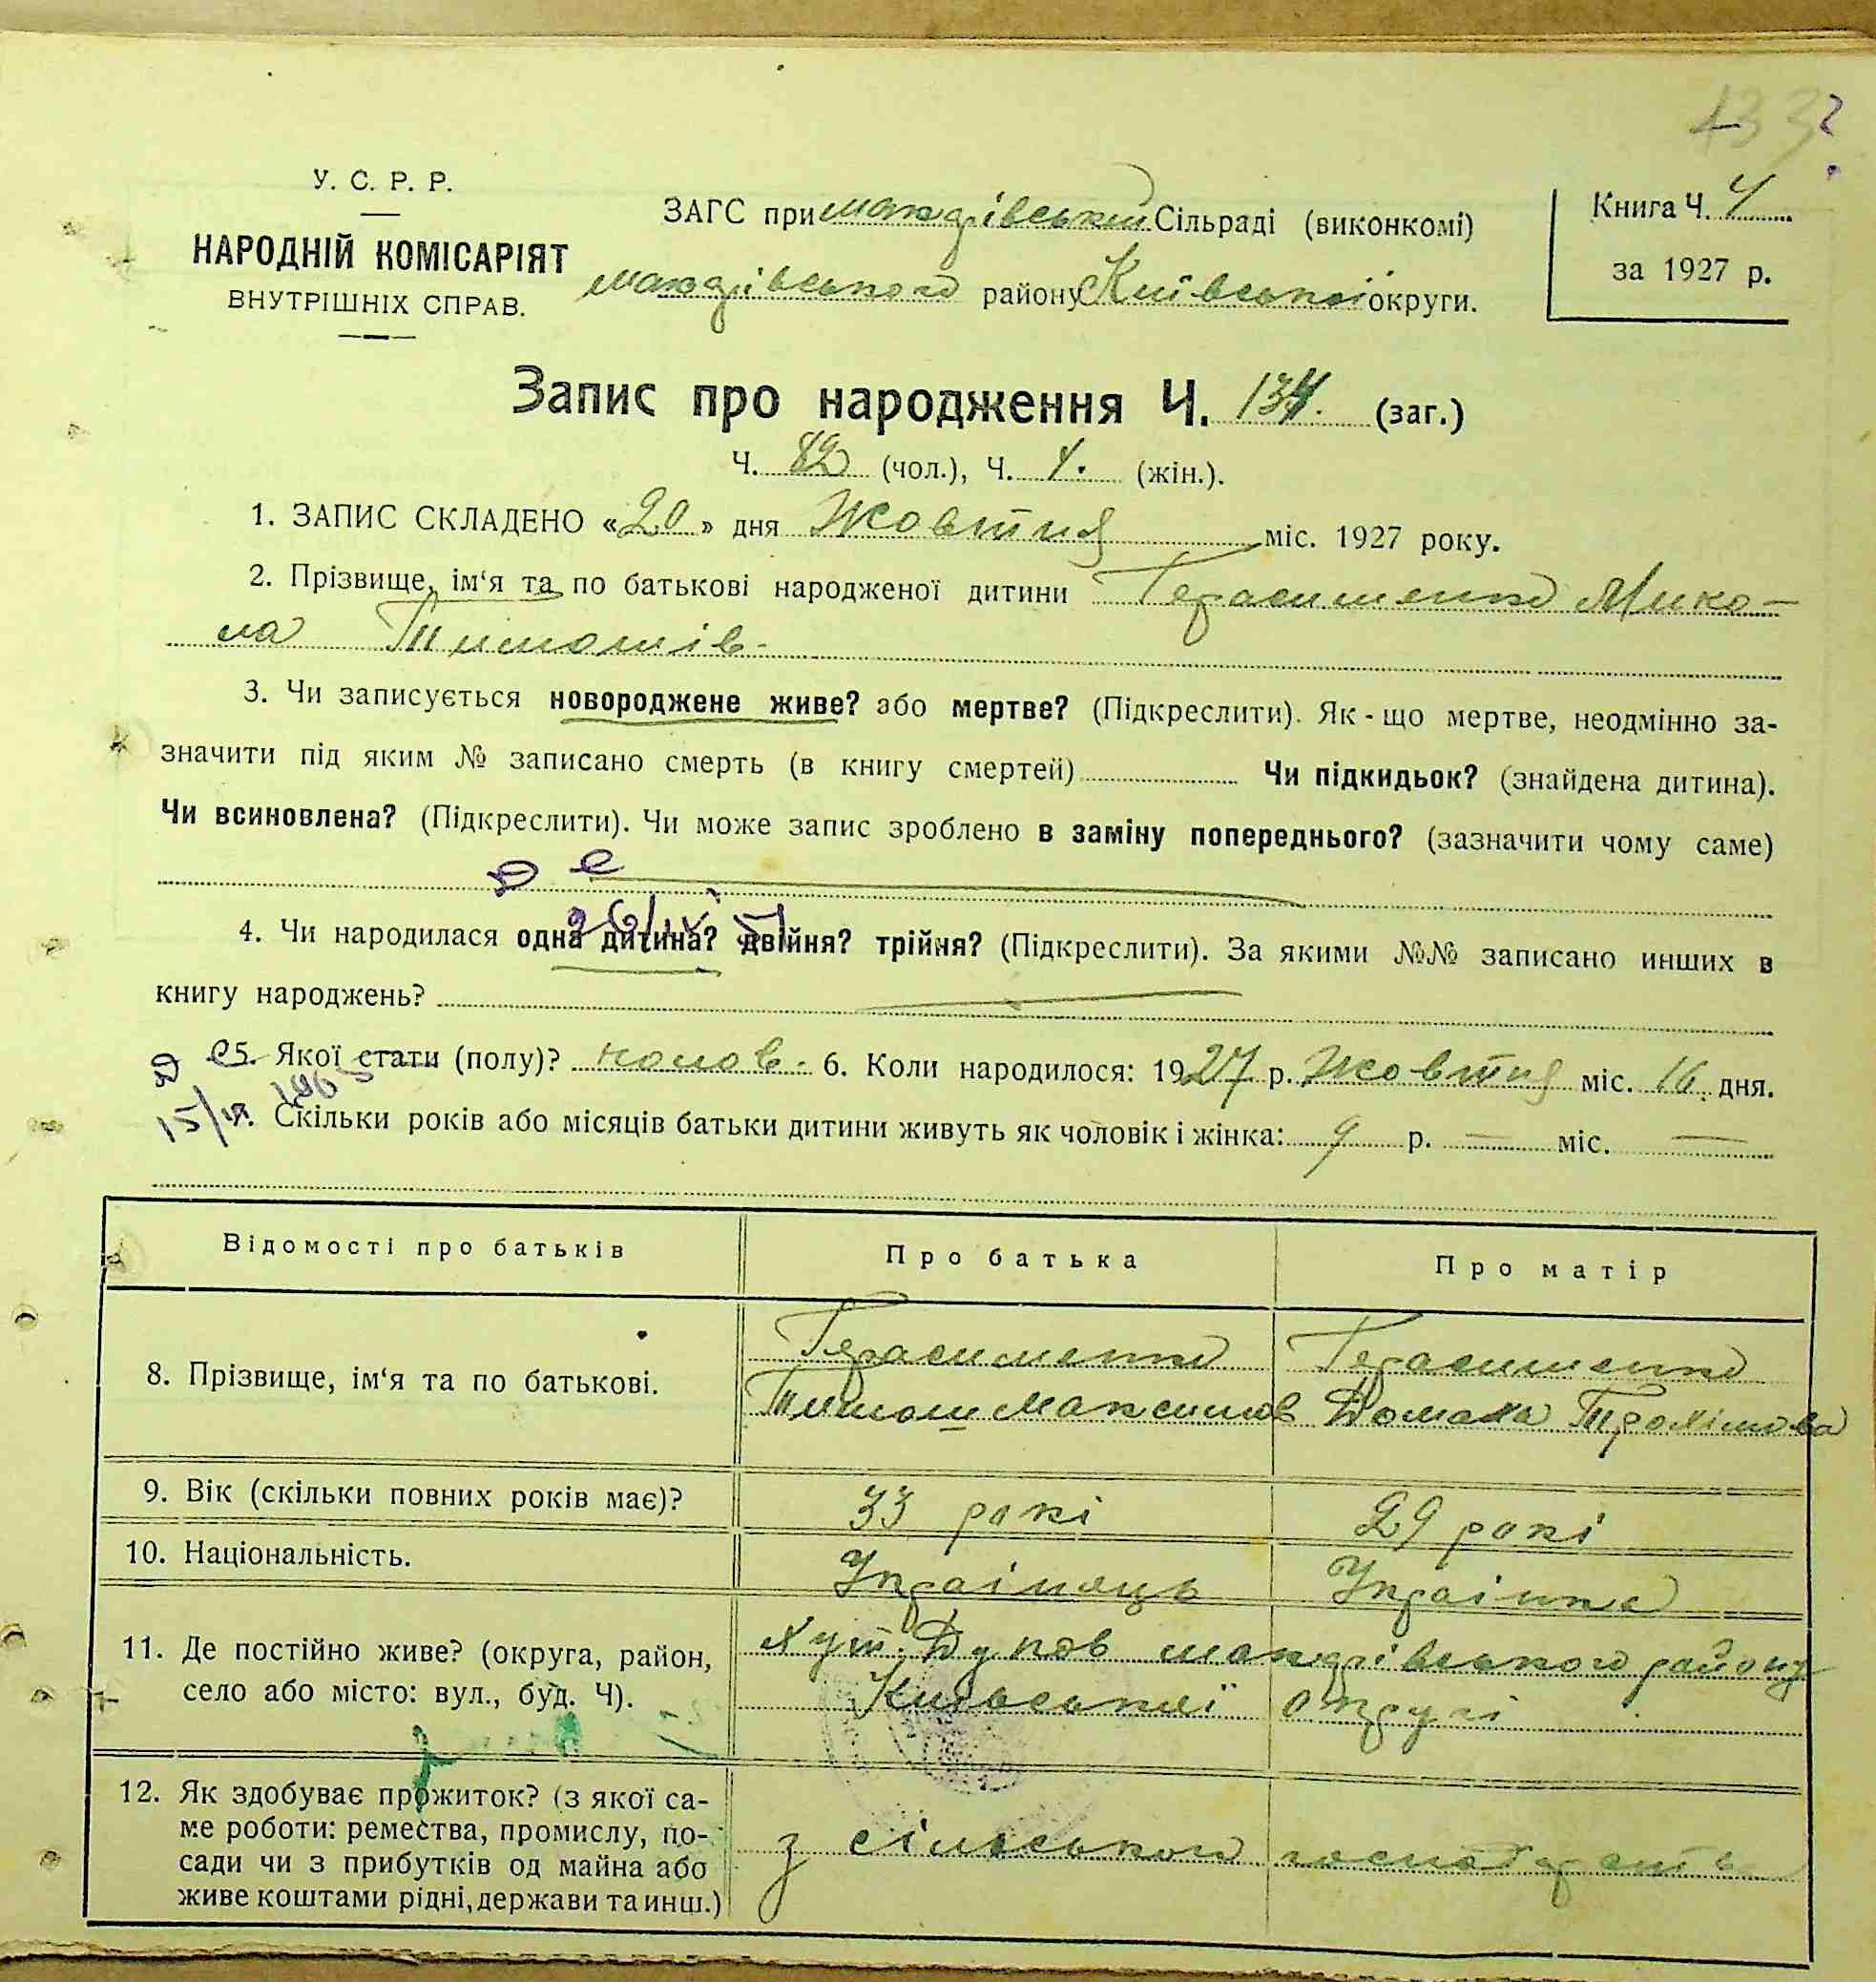 У. С. Р. Р.
НАРОДНІЙ КОМІСАРІЯТ
ВНУТРІШНІХ СПРАВ.
ЗАГС при макарівський Сільраді (виконкомі)
макарівського району Київської округи.
Книга Ч. 4
за 1927 р.
Запис про народження Ч. 134. (заг.)
Ч. 82 (чол.), Ч. (жін.).
1. ЗАПИС СКЛАДЕНО «20» дня Жовтня міс. 1927 року.
2. Прізвище, ім‘я та по батькові народженої дитини Герасименко Мико-
ла Тимошів.
3. Чи записується новороджене живе? або мертве? (Підкреслити). Як-що мертве, неодмінно за-
значити під яким № записано смерть (в книгу смертей) Чи підкидьок? (знайдена дитина).
Чи всиновлена? (Підкреслити). Чи може запис зроблено в заміну попереднього? (зазначити чому саме)
4. Чи народилася одна дитина? двійня? трійня? (Підкреслити). За якими №№ записано инших в
книгу народжень?
5. Якої стати (полу)? чолов. 6. Коли народилося: 1927 р. Жовтня міс. 16 дня.
Скільки років або місяців батьки дитини живуть як чоловік і жінка: 9 р. — міс. —
Відомості про батьків Про батька Про матір
8. Прізвище, ім‘я та по батькові.
Герасименко Герасименко
Тимош Максимов Домаха Трохімова
9. Вік (скільки повних років має)? 33 рокі 29 рокі
10. Національність. Українець Українка
11. Де постійно живе? (округа, район,
село або місто: вул., буд. Ч).
Хут. макарівського району
Київської округі
12. Як здобуває прожиток? (з якої са-
ме роботи: ремества, промислу, по-
сади чи з прибутків од майна або
живе коштами рідні, держави та инш.)
з сільського господарства